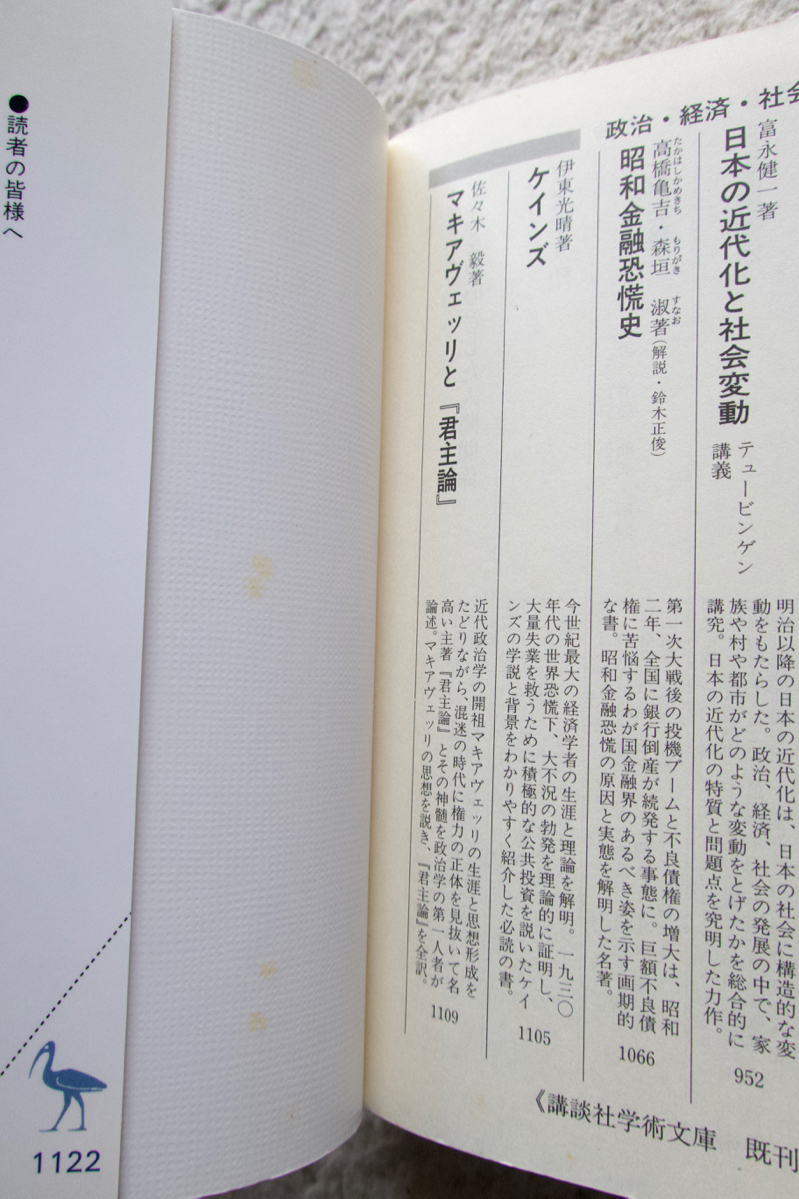 政治・経済・社会
富永健一著
日本の近代化と社会変動
テュービンゲン
講義
明治以降の日本の近代化は、日本の社会に構造的な変
動をもたらした。政治、経済、社会の発展の中で、家
族や村や都市がどのような変動をとげたかを総合的に
講究。日本の近代化の特質と問題点を究明した力作。
952
たかはしかめきち もりがき すなお
高橋亀吉・森垣 淑著(解説・鈴木正俊)
昭和金融恐慌史
第一次大戦後の投機ブームと不良債権の増大は、昭和
二年、全国に銀行倒産が続発する事態に。巨額不良債
権に苦悩するわが国金融界のあるべき姿を示す画期的
な書。昭和金融恐慌の原因と実態を解明した名著。
1066
伊東光晴著
ケインズ
今世紀最大の経済学者の生涯と理論を解明。一九三〇
年代の世界恐慌下、大不況の勃発を理論的に証明し、
大量失業を救うために積極的な公共投資を説いたケイ
ンズの学説と背景をわかりやすく紹介した必読の書。
1105
佐々木 毅著
マキアヴェッリと『君主論』
近代政治学の開祖マキアヴェッリの生涯と思想形成を
たどりながら、混迷の時代に権力の正体を見抜いて名
高い主著『君主論』とその神髄を政治学の第一人者が
論述。マキアヴェッリの思想を説き、『君主論』を全訳。
1109
《講談社学術文庫 既刊
●読者の皆様へ
1122